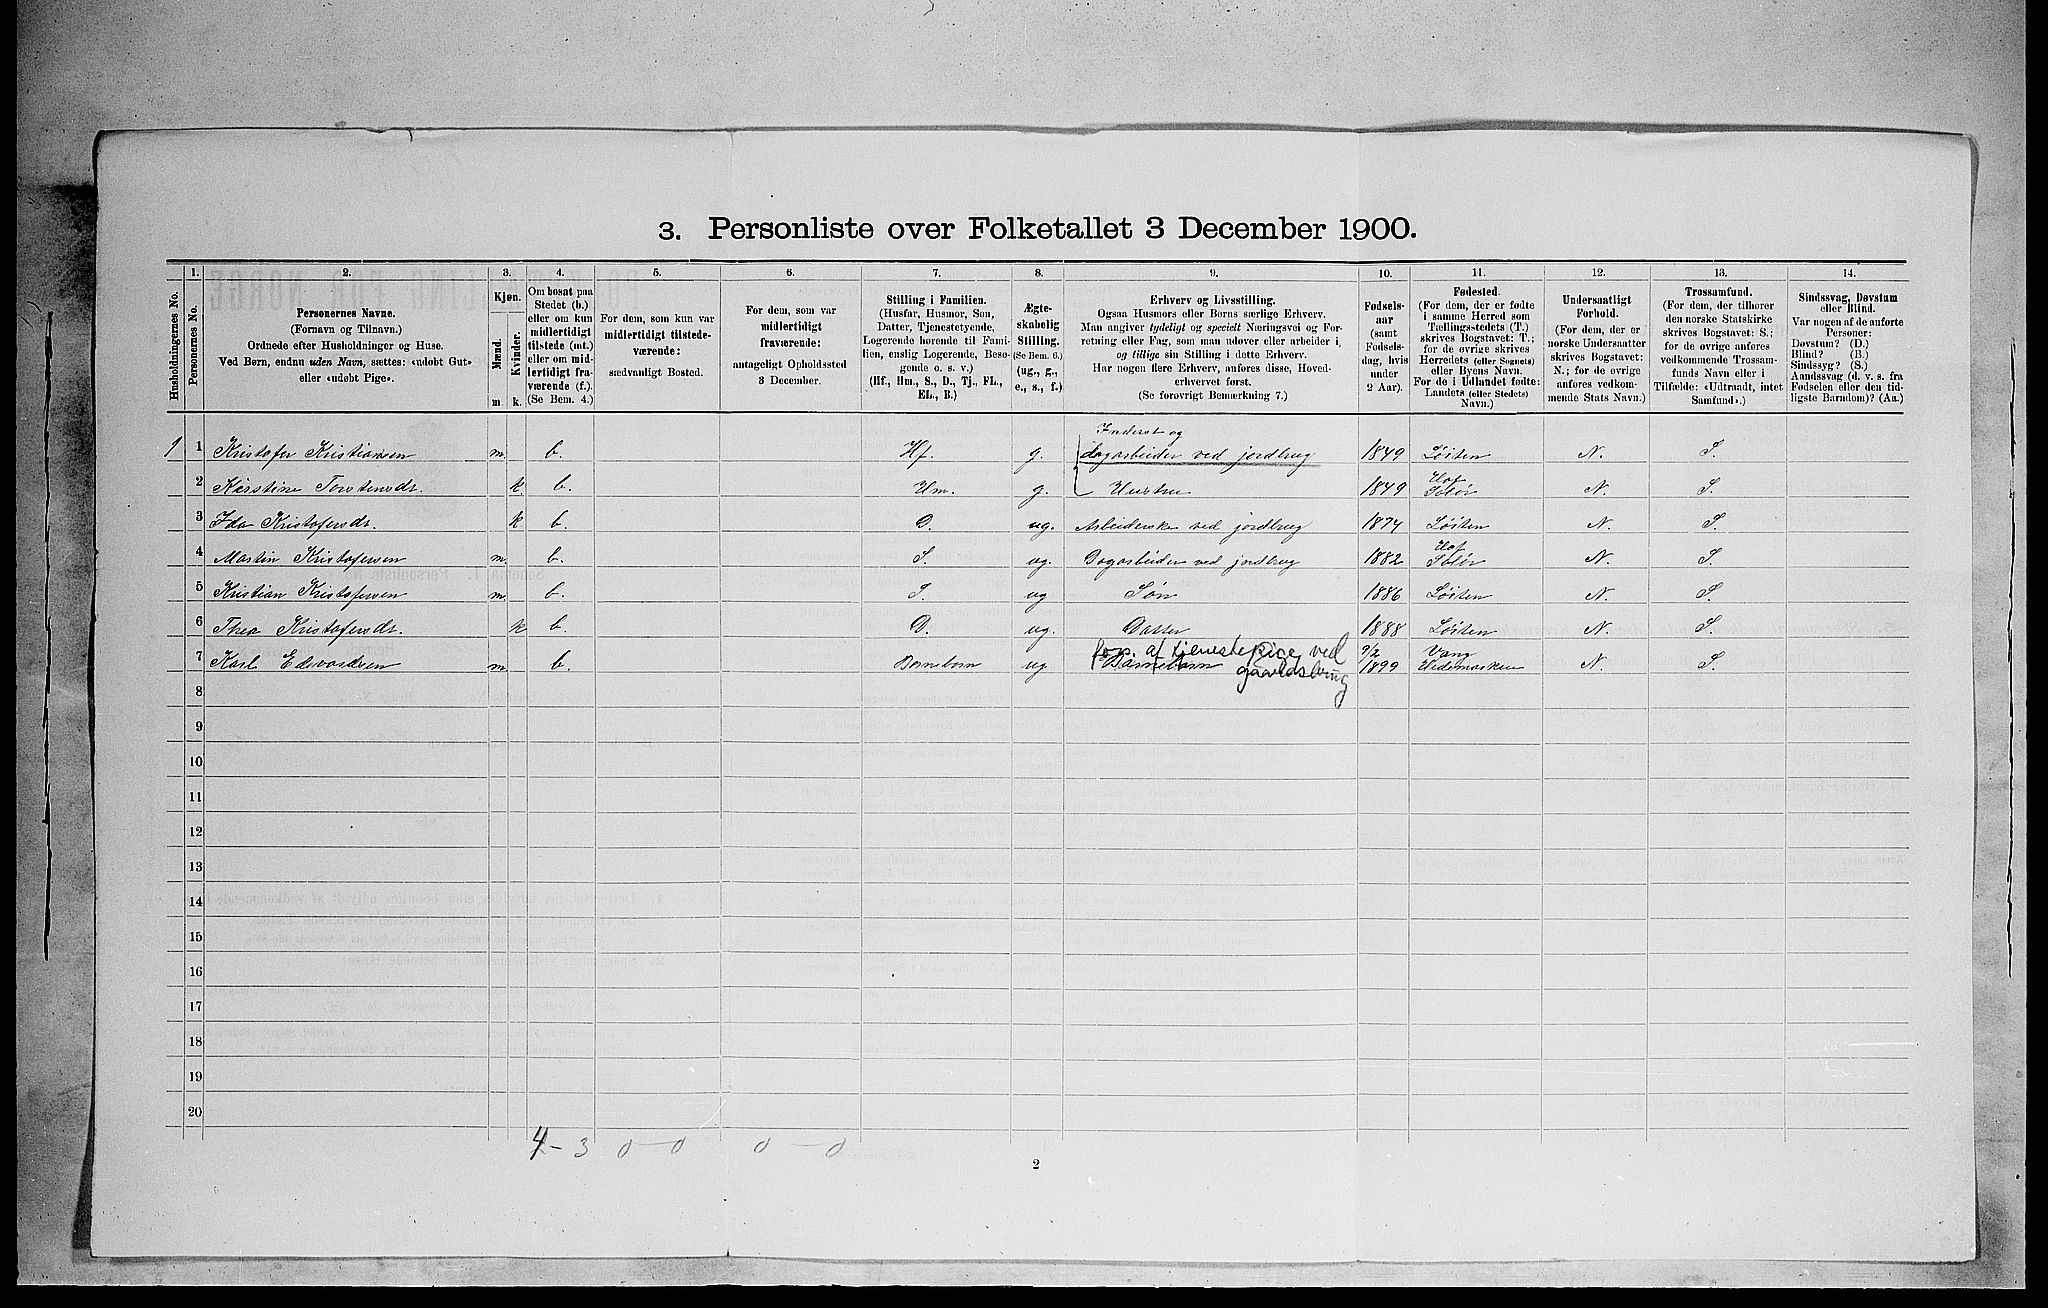 3. Personliste over Folketallet 3 December 1900.
1. 2. 3. 4. 5. 6. 7. 8. 9. 10. 11. 12. 13. 14.
Husholdningernes No.
Personernes No.
Personernes Navne.
(Fornavn og Tilnavn.)
Ordnede efter Husholdninger og Huse.
Ved Børn, endnu uden Navn, sættes: «udøbt Gut»
eller «udøbt Pige».
Kjøn.
Mænd.
Kvinder.
m. k.
Om bosat paa
Stedet (b.)
eller om kun
midlertidigt
tilstede (mt.)
eller om mid-
lertidigt fra-
værende (f.).
(Se Bem. 4.)
For dem, som kun var
midlertidigt tilstede-
værende:
sædvanligt Bosted.
For dem, som var
midlertidigt
fraværende:
antageligt Opholdssted
3 December.
Stilling i Familien.
(Husfar, Husmor, Søn,
Datter, Tjenestetyende,
Logerende hørende til Fami-
lien, enslig Logerende, Besø-
gende o. s. v.)
(Hf., Hm., S., D., Tj., FL.,
EL., B.)
Ægte-
skabelig
Stilling.
(Se Bem. 6.)
(ug., g.,
e., s., f.)
Erhverv og Livsstilling.
Ogsaa Husmors eller Børns særlige Erhverv.
Man angiver tydeligt og specielt Næringsvei og For-
retning eller Fag, som man udøver eller arbeider i,
og tillige sin Stilling i dette Erhverv.
Har nogen flere Erhverv, anføres disse, Hoved-
erhvervet først.
(Se forøvrigt Bemærkning 7.)
Fødsels-
aar
(samt
Fødsels-
dag, hvis
under
2 Aar).
Fødested.
(For dem, der er fødte
i samme Herred som
Tællingsstedets (T.)
skrives Bogstavet: T.;
for de øvrige skrives
Herredets (eller Sognets)
eller Byens Navn.
For de i Udlandet fødte:
Landets (eller Stedets)
Navn.)
Undersaatligt
Forhold.
(For dem, der er
norske Undersaatter
skrives Bogstavet:
N.; for de øvrige
anføres vedkom-
mende Stats Navn.)
Trossamfund.
(For dem, der tilhører
den norske Statskirke
skrives Bogstavet: S.;
for de øvrige anføres
vedkommende Trossam-
funds Navn eller i
Tilfælde: «Udtraadt, intet
Samfund».)
Sindssvag, Døvstum
eller Blind.
Var nogen af de anførte
Personer:
Døvstum? (D.)
Blind? (B.)
Sindssyg? (S.)
Aandssvag (d. v. s. fra
Fødselen eller den tid-
ligste Barndom)? (Aa.)
Inderst og
1 1 Kristofer Kristiansen m. b. Hf. g. dagarbeider ved jordbrug 1849 Löiten N. S.
Hof
2 Kirstine Torstensdr. k. b. Hm. g. Hustru 1849 Solör N. S.
3 Ida Kristofersdr. k b. D. ug. Arbeiderske ved jordbrug 1874 Löiten N. S.
Hof
4 Martin Kristofersen m. b. S. ug. Dagarbeider ved jordbrug 1882 Solör N. S.
5 Kristian Kristofersen m. b. S. ug Sön 1886 Löiten N. S.
6 Thea Kristofersdr. k b. D. ug. Datter 1888 Löiten N. S.
fors. af tjenestepige ved 9/2 Vang
7 Karl Edvardsen m. b. Barnebarn ug Barnebarn gaardsbrug 1899 Hedemarken N. S.
8
9
10
11
12
13
14
15
16
17
18
19
20
4 - 3 0 - 0 0 - 0
2